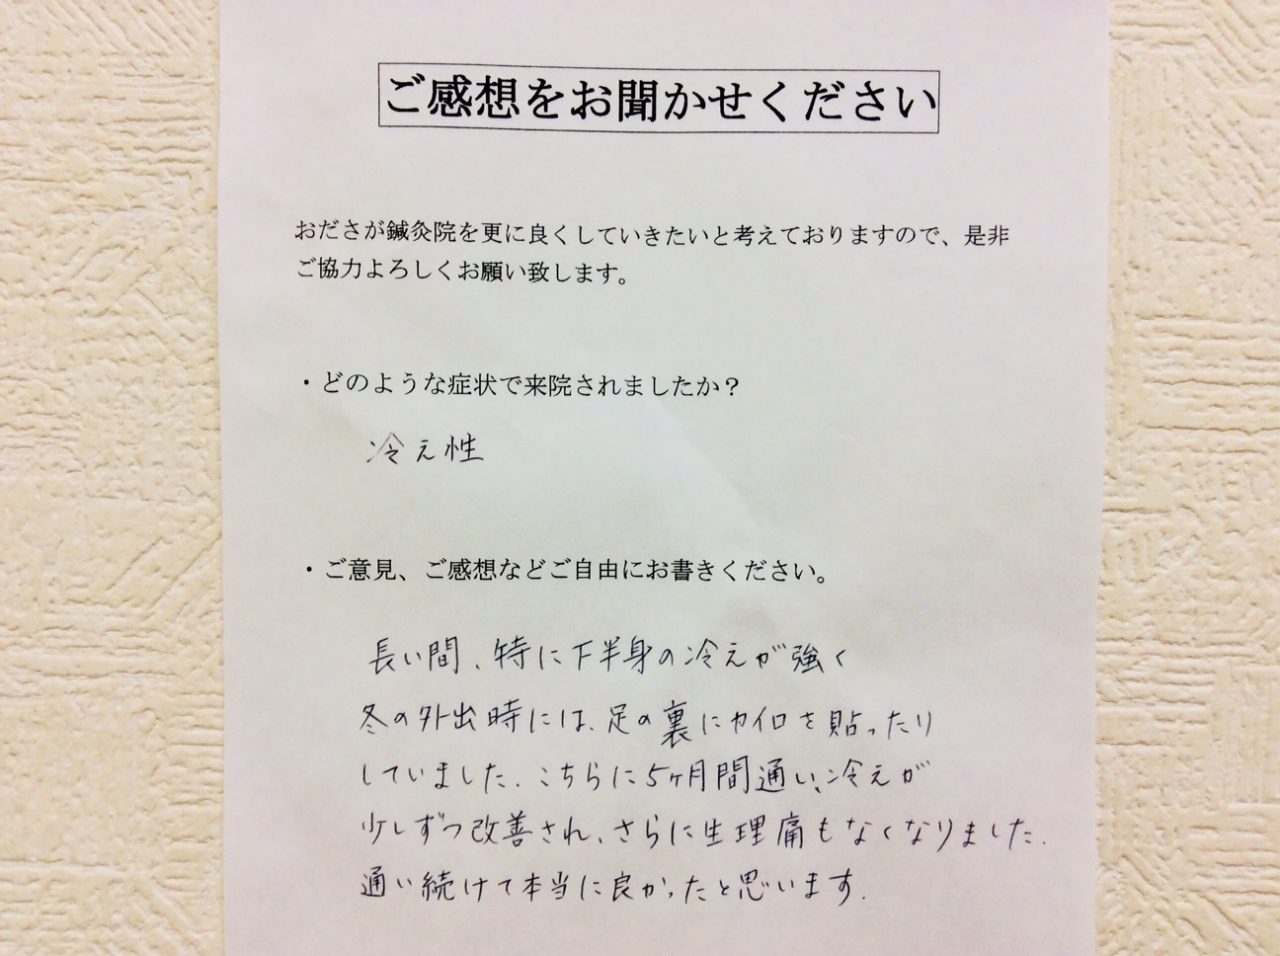 ご感想をお聞かせください
おださが鍼灸院を更に良くしていきたいと考えておりますので、是非
ご協力よろしくお願い致します。
・どのような症状で来院されましたか？
冷え性
・ご意見、ご感想などご自由にお書きください。
長い間、特に下半身の冷えが強く
冬の外出時には、足の裏にカイロを貼ったり
していました。こちらに5ヶ月間通い、冷えが
少しずつ改善され、さらに生理痛もなくなりました。
通い続けて本当に良かったと思います。